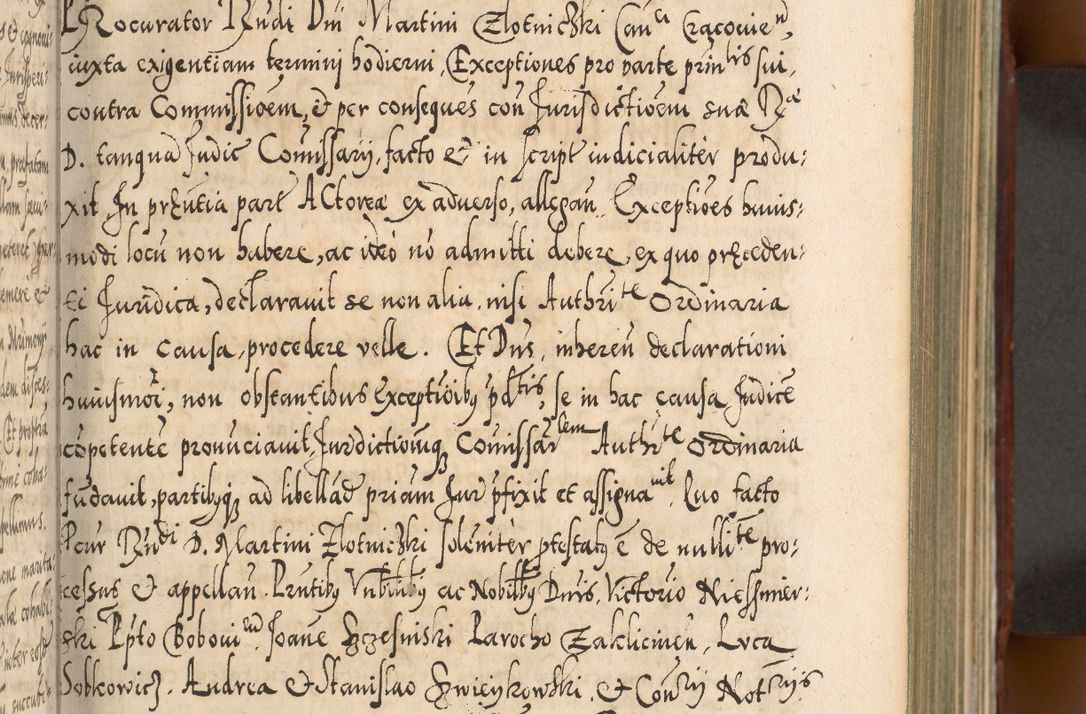 PRocurator Rndi Dni Martini Zlotniczki Canci Cracovien,
iuxta exigentiam termini hodierni, Exceptiones pro parte prin̄tis sui,
contra Commissioēm, & per conseques con Jurisdictioēm suæ Ræ
D. tanqua Judic Comissarij, facto & in script iudicialiter produ:
xit. In prȩntia part ACtoreæ ex adverso, allegan. Exceptiōes huius:
modi locu non habere, ac ideo nō admitti debere, ex quo præceden:
ti Juridica, declaravit se non alia, nisi Authrite Ordinaria
hac in causa, procedere velle. Et Dns, inheren declarationi
huiusmōi, non obstantibus Exceptioibq pdtis, se in hac causa Judicē
cōpetentē pronūciavit, Jurdictionūq Comissarlem Authrte Ordinaria
fūdavit, partibqq ad libellād priam Jur pfixit et assignavit. Quo facto
Pcur Rndi D. Martini Zlotniczki solēniter ptestatq ē de nullite pro:
cessus & appellan. Prntibq Vnbilibq ac Nobilibq Dnis. Victorio Niessmier:
ski Ppto Bobovien. Joane Szczesniski Parocho Zaklicinen, Lvca
Sobkowicz. Andrea & Stanislao Swieiykowski. &Conrij Notrijs